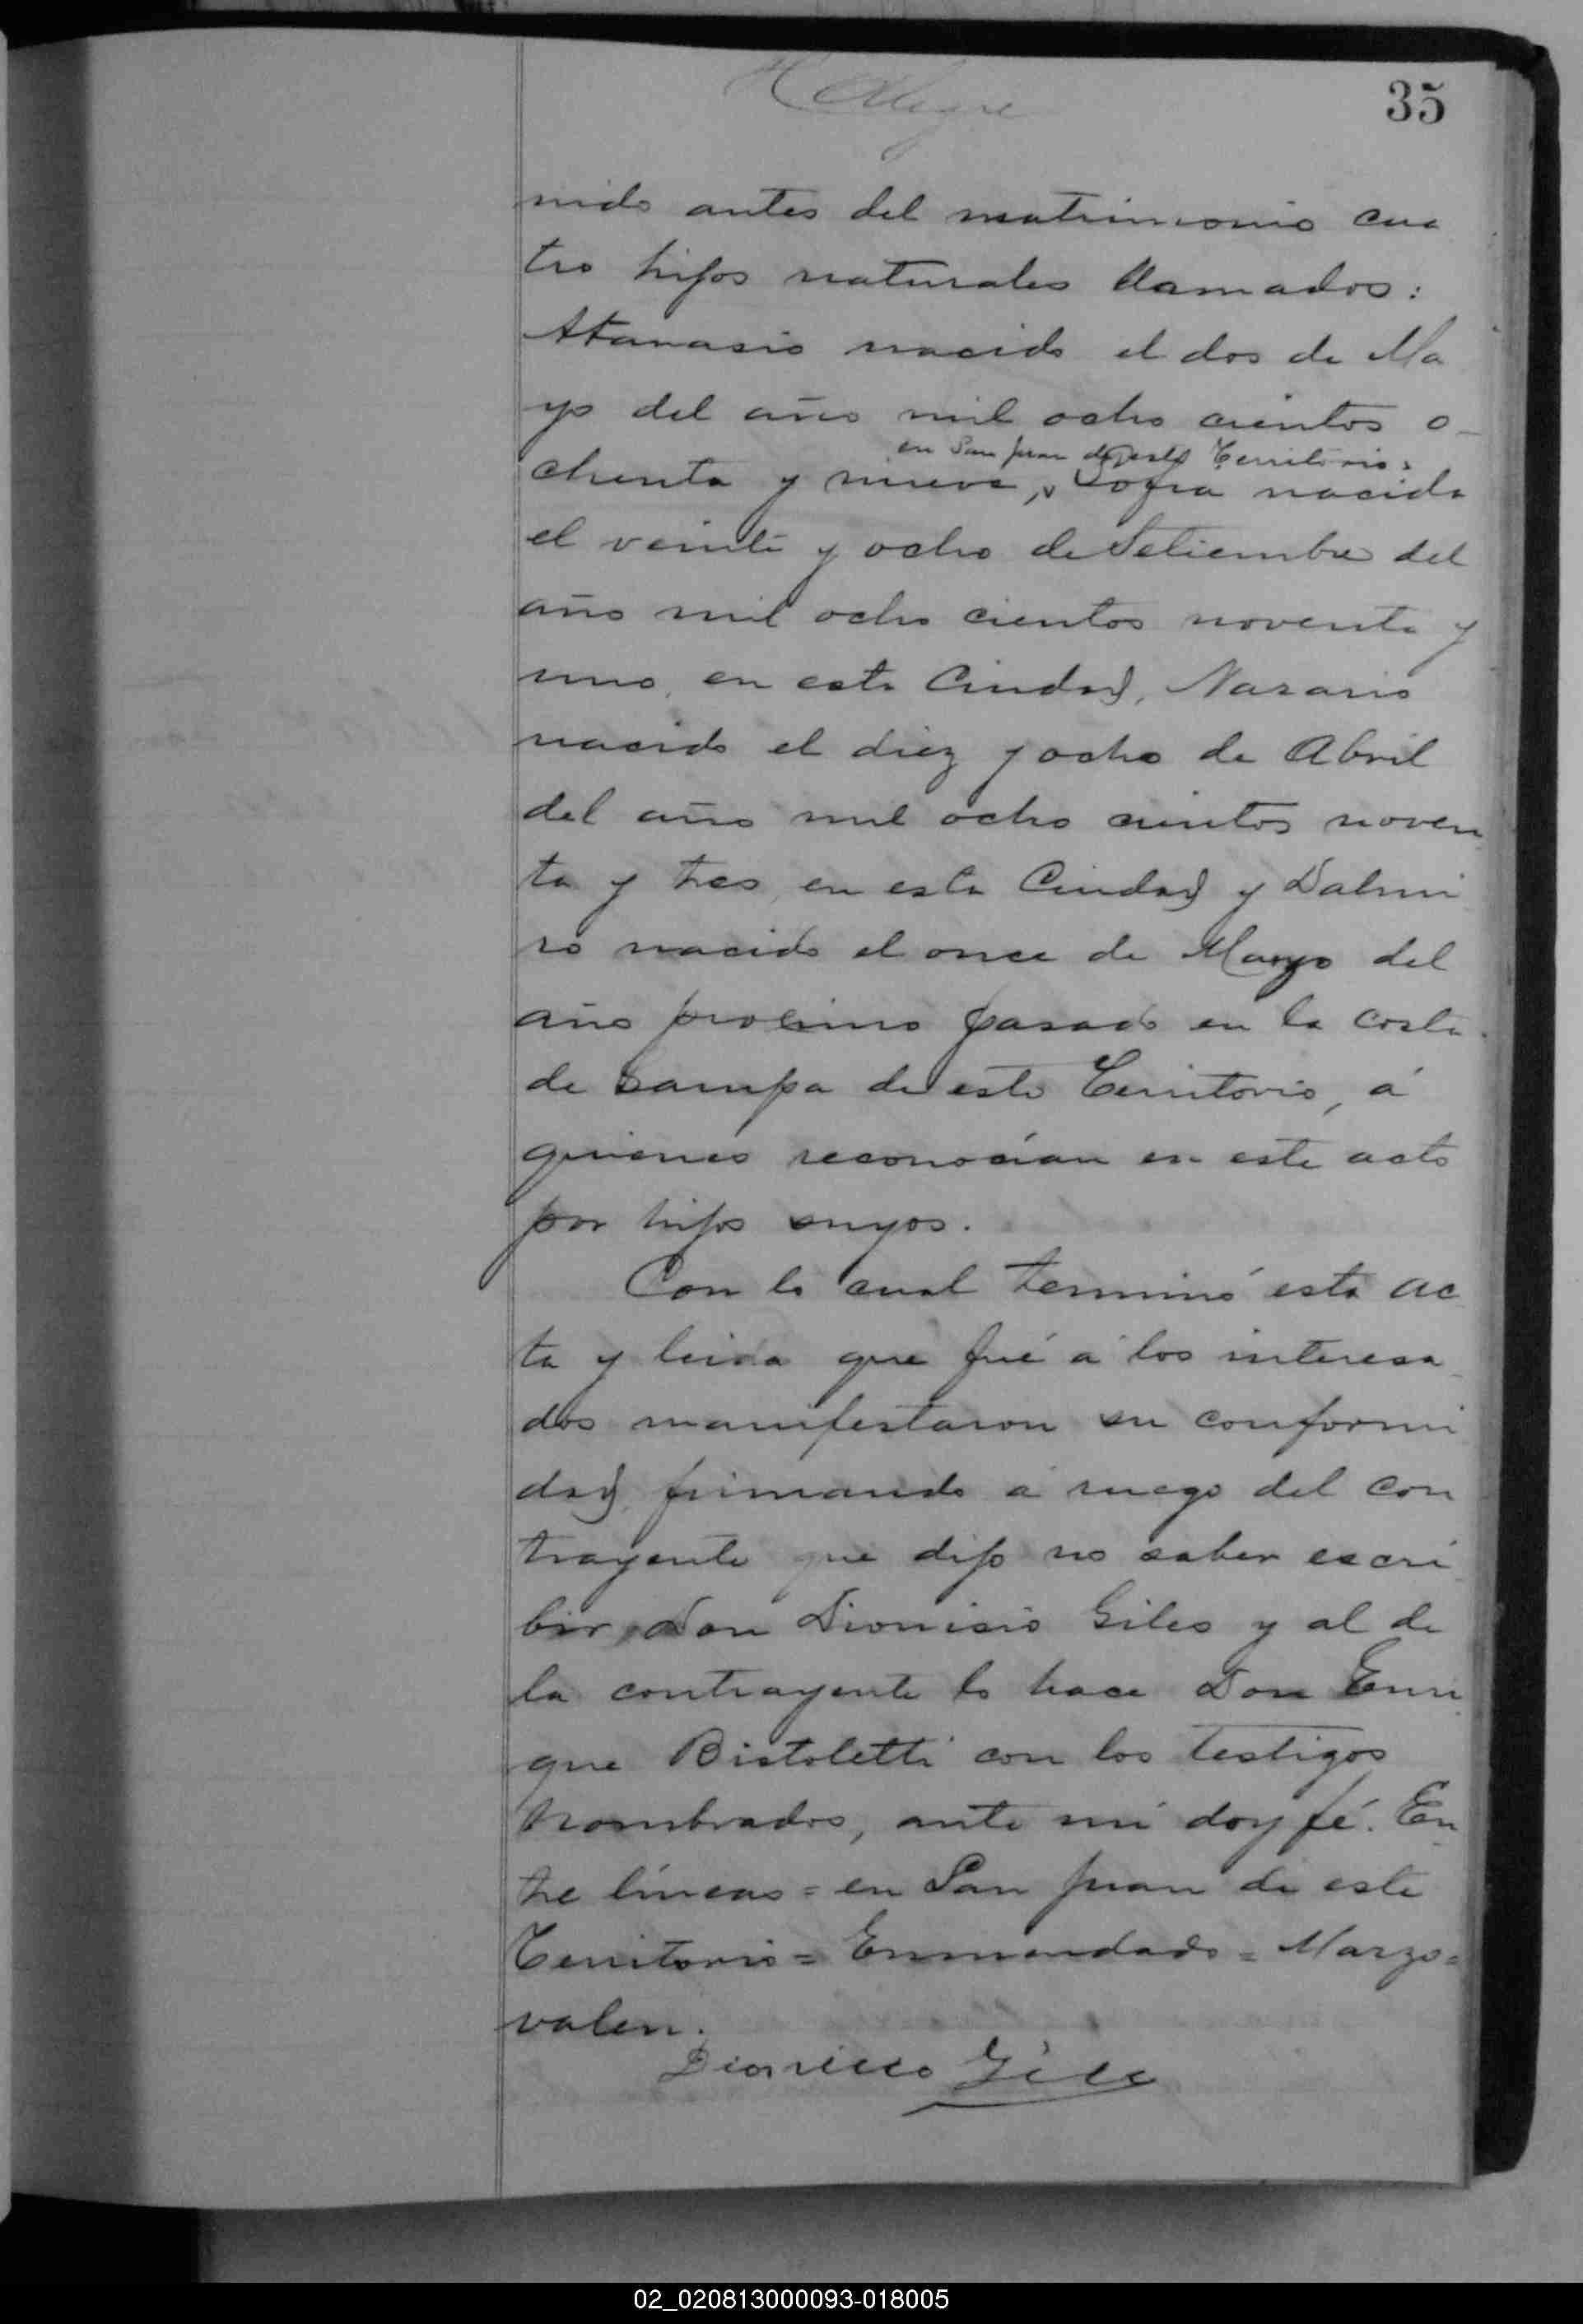 H Alegre
35
nido antes del matrimonio cua
tro hijos naturales llamados:
Atanasio nacido el dos de Ma
yo del año mil ocho cientos o-
en San Juan de este Territorio:
chenta y nueve, Sofia nacida
el veinte y ocho de Setiembre del
año mil ocho cientos noventa y
uno, en esta Ciudad, Nazario
nacido el diez y ocho de Abril
del año mil ocho cientos noven
ta y tres, en esta Ciudad y Dalmi
ro nacido el once de Marzo del
año procsimo pasado en la costa
de Sampa de este Territorio, á
quienes reconocian en este acto
por hijos suyos.
Con lo cual terminó esta ac
ta y leida que fué á los interesa
dos manifestaron su conformi
dad, firmando á ruego del con
trayente que dijo no saber escri
bir, Don Dionisio Giles y al de
la contrayente lo hace Don Enri
que Bistoletti con los testigos
nombrados, ante mí doy fé. En
tre líneas = en San Juan de este
Territorio = Enmendado = Marzo =
valen.
Dionicio Giles
02_020813000093-018005